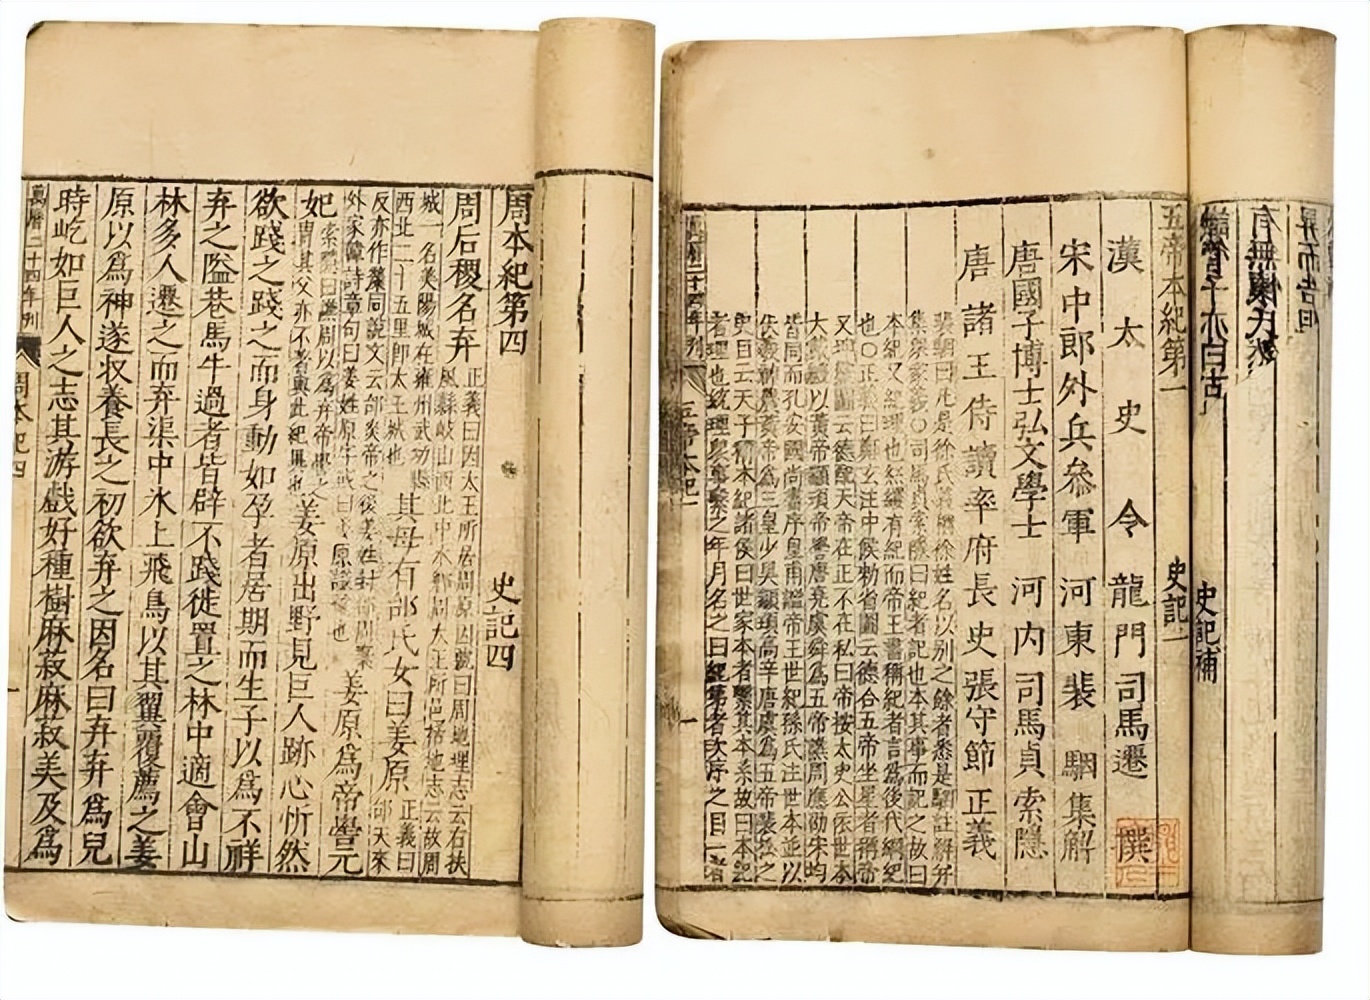 有無懷氏
管子亦曰古
史記補
五帝本紀第一 史記一
漢太史令龍門司馬遷撰
宋中郎外兵參軍河東裴駰集解
唐國子博士弘文學士河內司馬貞索隱
唐諸王侍讀率府長史張守節正義
裴駰曰凡是徐氏義稱徐姓名以別之餘者悉是駰註解并
集眾家義〇司馬貞索隱曰紀者記也本其事而記之故曰
本紀又紀理也絲縷有紀而帝王書稱紀者言爲後代綱紀
也〇正義曰鄭玄注中候勑省圖云德合五帝坐星者稱帝
又坤靈圖云德配天帝在正不在私曰帝按太史公依世本
大戴禮以黃帝顓頊帝嚳唐堯虞舜爲五帝譙周應劭宋均
皆同而孔安國尚書序皇甫謐帝王世紀孫氏注世本並以
伏羲神農黃帝爲三皇少昊顓頊高辛唐虞爲五帝裴松之
史目云天子稱本紀諸侯曰世家本者繫其本系故曰本紀
者理也統理眾事繫之年月名之曰紀第者次序之目一者
二十四年刊 五帝本紀一 一
周本紀第四 史記四
周后稷名弃
正義曰因太王所居周原因號曰周地理志云右扶
風縣岐山西北中水鄉周太王所邑括地志云故周
城一名美陽城在雍州武功縣
西北二十五里即太王城也
其母有邰氏女曰姜原
正義曰
邰天來
反亦作斄同說文云邰炎帝之後姜姓封邰周棄
外家韓詩章句曰姜姓原字或曰姜原諡號也
姜原爲帝嚳元
妃
索隱曰譙周以爲弃帝嚳之
冑其父亦不著與此紀異也
姜原出野見巨人跡心忻然
欲踐之踐之而身動如孕者居期而生子以爲不祥
弃之隘巷馬牛過者皆辟不踐徙置之林中適會山
林多人遷之而弃渠中氷上飛鳥以其翼覆薦之姜
原以爲神遂収養長之初欲弃之因名曰弃弃爲兒
時屹如巨人之志其游戲好種樹麻菽麻菽美及爲
萬曆二十四年刊 周本紀四 一